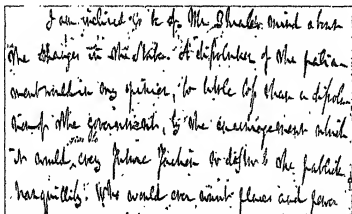 I am inclined to be of Mr. Shaler's mind about
the changes in the State. A dissolution of the parlia-
ment would in my opinion, be little less than a dissolu-
tion of the Government, by the encouragement which
it would give to every future faction to disturb the publick
tranquillity. Who would ever want places and